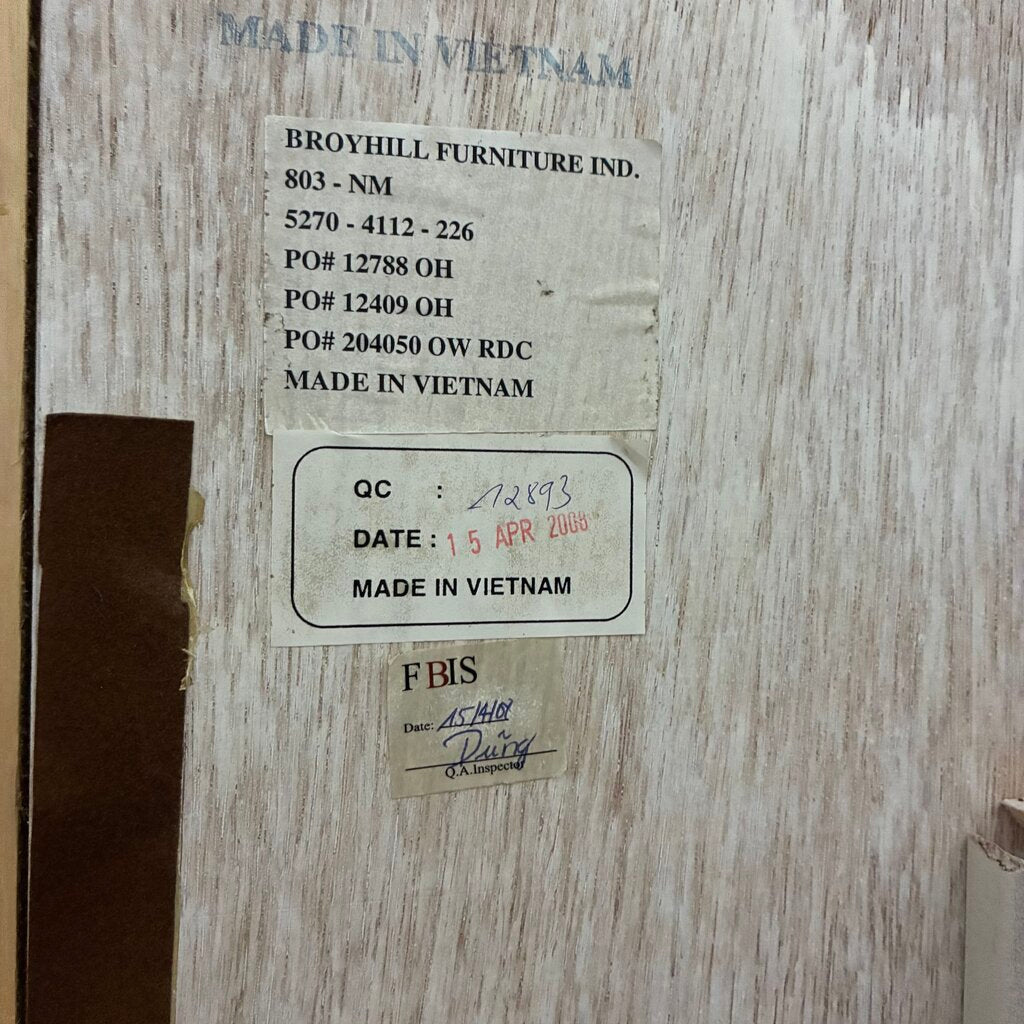 MADE IN VIETNAM
BROYHILL FURNITURE IND.
803 - NM
5270 - 4112 - 226
PO# 12788 OH
PO# 12409 OH
PO# 204050 OW RDC
MADE IN VIETNAM
QC : 12893
DATE : 15 APR 2008
MADE IN VIETNAM
FBIS
Date: 15/4/08
Dũng
Q.A.Inspector